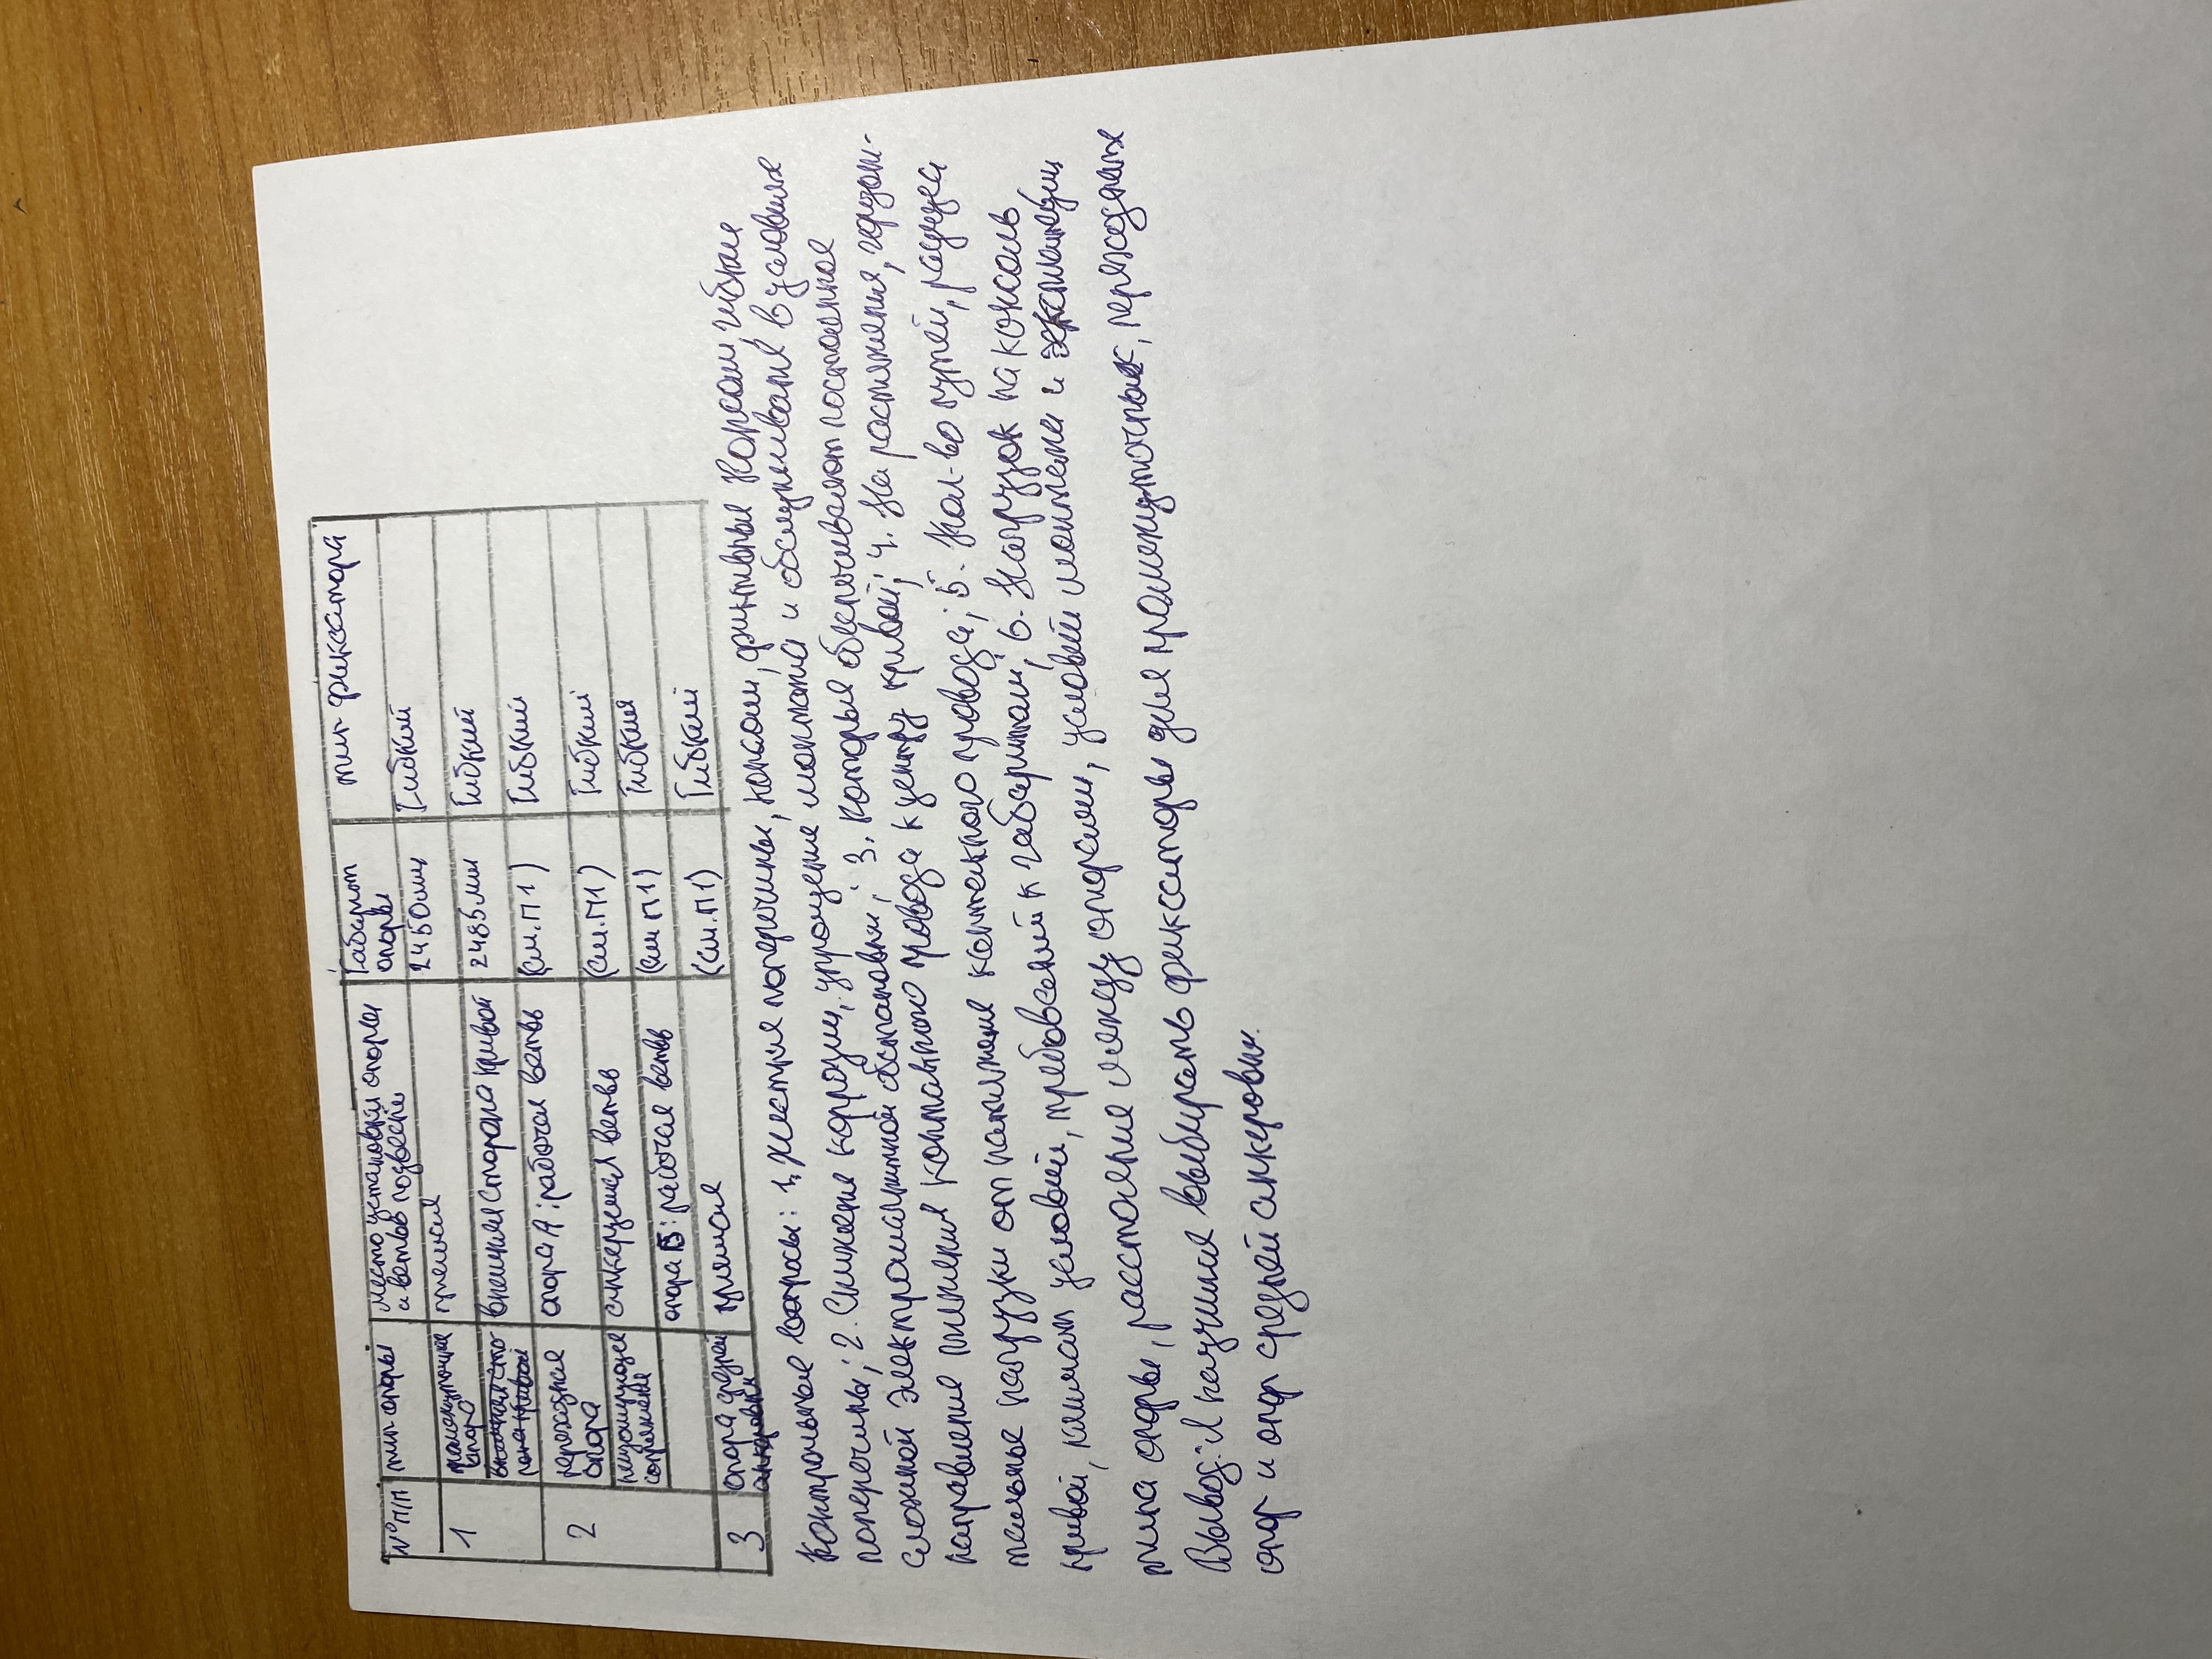 № п/п тип опоры место установки опоры и ветвь подвески Габарит опоры тип фиксатора
1 промежуточная опора прямая 2450мм Гибкий
внешняя сторона кривой 2485мм Гибкий
2 переходная опора опора А: рабочая ветвь (см.П1) Гибкий
неизолирующее сопряжение анкеруемая ветвь (см.П1) Гибкий
опора Б: рабочая ветвь (см П1) Гибкий
3 опора средней анкеровки прямая (см.П1) Гибкий
Контрольные вопросы: 1, Жесткие поперечины, консоли, фиктивные консоли, гибкие
поперечины; 2. Снижение коррозии, упрощение монтажа и обслуживания в условиях
сложной электромагнитной обстановки; 3. которые обеспечивают постоянное
направление контактного провода к центру кривой; 4. На растяжения, горизон-
тальные нагрузки от натяжения контактного провода; 5. Кол-во путей, радиуса
кривой, климат условий, требований к габаритам; 6. Нагрузок на консоль
типа опоры, расстояние между опорами, условий монтажа и эксплуатации
Вывод: Я научился выбирать фиксаторы для промежуточных, переходных
опор и опор средней анкеровки.